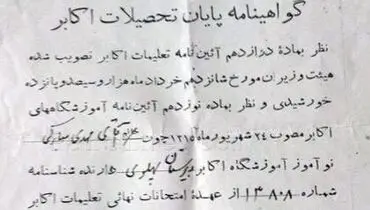 گواهینامه پایان تحصیلات اکابر
نظر بمادهٔ دوازدهم آئین‌نامه تعلیمات اکابر تصویب شده
هیئت وزیران مورخ شانزدهم خرداد ماه هزار و سیصد و پانزده
خورشیدی و نظر بماده نوزدهم آئین‌نامه آموزشگاههای
اکابر مصوب ۲۴ شهریور ماه ۱۳۱۵ چون آقای مهدی
نوآموز آموزشگاه اکابر دبیرستان پهلوی دارنده شناسنامه
شماره ۱۳۸۰۸ از عهدهٔ امتحانات نهائی تعلیمات اکابر